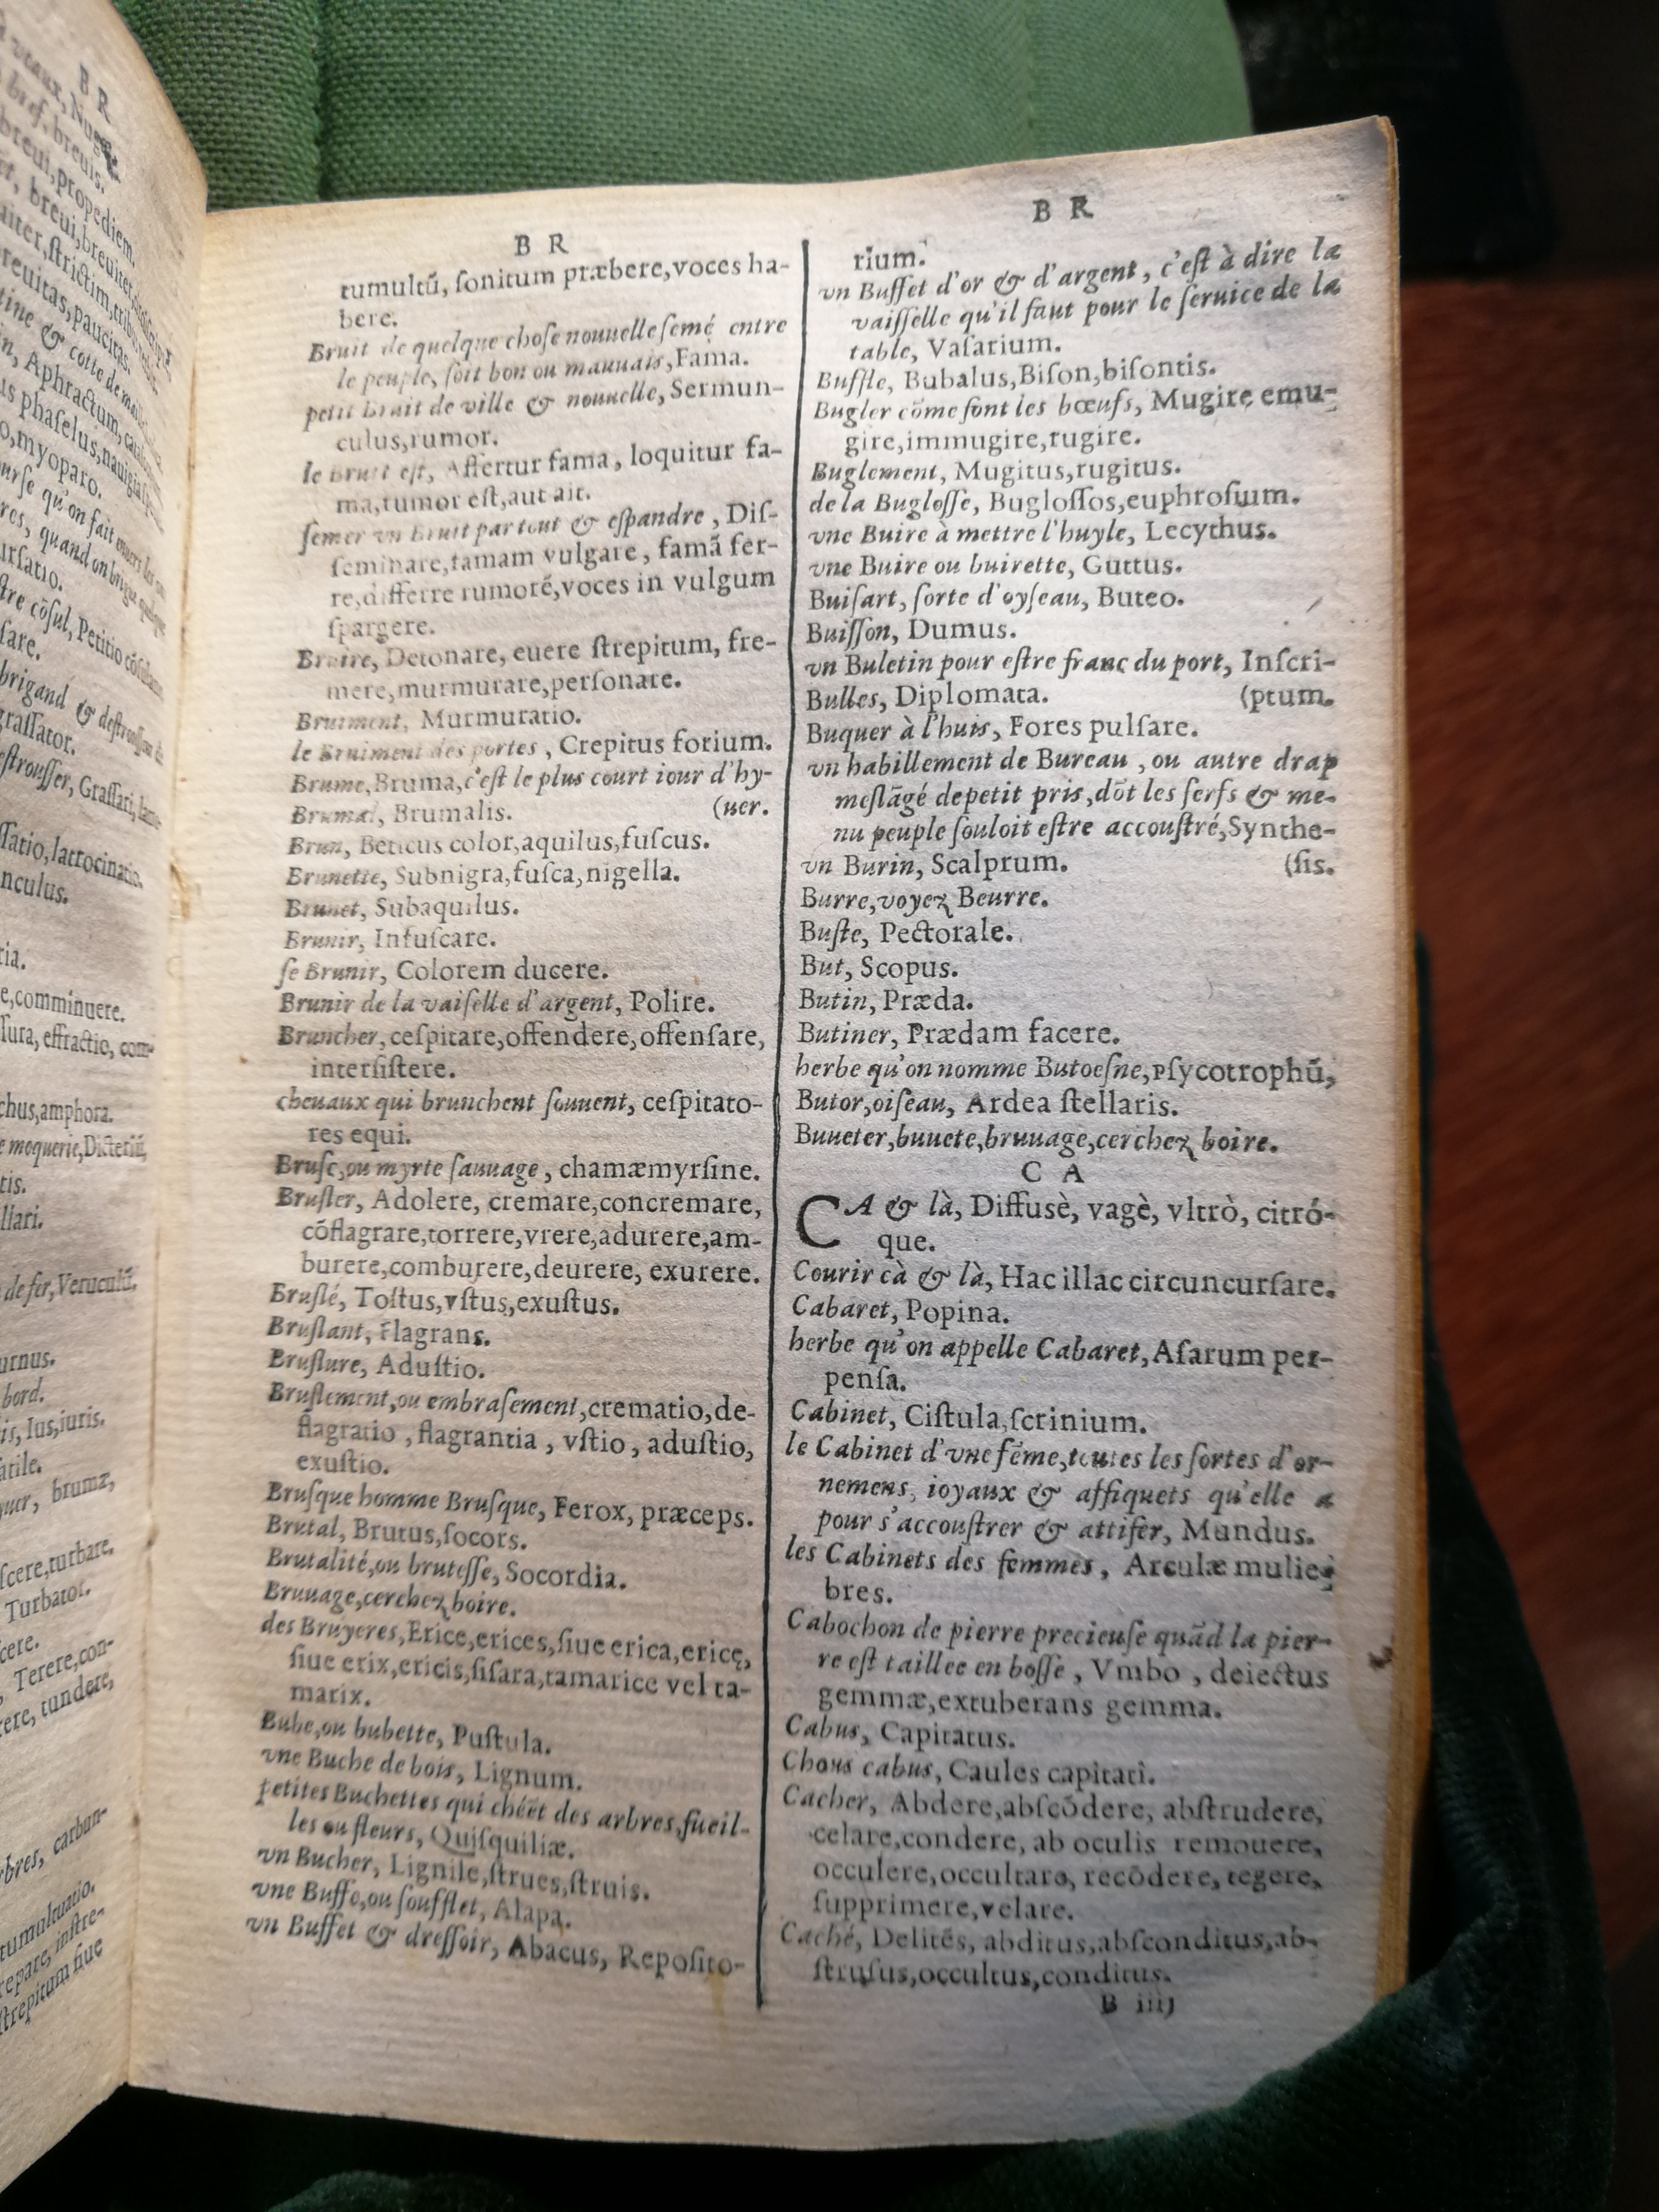 B R
tumultū, ſonitum præbere,voces ha-
bere.
Bruit de quelque choſe nouuelle ſemé entre
le peuple, ſoit bon ou mauuais,Fama.
petit Bruit de ville & nouuelle, Sermun-
culus,rumor.
le Bruit eſt, Affertur fama, loquitur fa-
ma,rumor eſt,aut ait.
ſemer vn Bruit par tout & eſpandre, Diſ-
ſeminare,famam vulgare, famā fer-
re,differre rumorē,voces in vulgum
ſpargere.
Bruire, Detonare, euere ſtrepitum, fre-
mere,murmurare,perſonare.
Bruiment, Murmuratio.
le Bruiment des portes, Crepitus forium.
Brume,Bruma,c'eſt le plus court iour d'hy-
Brumal, Brumalis. (uer.
Brun, Beticus color,aquilus,fuſcus.
Brunette, Subnigra,fuſca,nigella.
Brunet, Subaquilus.
Brunir, Infuſcare.
ſe Brunir, Colorem ducere.
Brunir de la vaiſelle d'argent, Polire.
Bruncher, ceſpitare,offendere,offenſare,
interſiſtere.
cheuaux qui brunchent ſouuent, ceſpitato-
res equi.
Bruſc,ou myrte ſauuage, chamæmyrſine.
Bruſler, Adolere, cremare,concremare,
cōflagrare,torrere,vrere,adurere,am-
burere,comburere,deurere, exurere.
Bruſlé, Toſtus,vſtus,exuſtus.
Bruſlant, Flagrans.
Bruſlure, Aduſtio.
Bruſlement,ou embraſement,crematio,de-
flagratio, flagrantia, vſtio, aduſtio,
exuſtio.
Bruſque homme Bruſque, Ferox, præceps.
Brutal, Brutus,ſocors.
Brutalité,ou bruteſſe, Socordia.
Bruuage,cerchez boire.
des Bruyeres,Erice,erices,ſiue erica,ericę,
ſiue erix,ericis,ſiſara,tamarice vel ta-
marix.
Bube,ou bubette, Puſtula.
vne Buche de bois, Lignum.
petites Buchettes qui chéet des arbres,fueil-
les ou fleurs, Quiſquiliæ.
vn Bucher, Lignile,ſtrues,ſtruis.
vne Buffe,ou ſoufflet, Alapa.
vn Buffet & dreſſoir, Abacus, Repoſito-
B R
rium.
vn Buffet d'or & d'argent, c'eſt à dire la
vaiſſelle qu'il faut pour le ſeruice de la
table, Vaſarium.
Buffle, Bubalus,Biſon,biſontis.
Bugler cōme font les bœufs, Mugire, emu-
gire,immugire,rugire.
Buglement, Mugitus,rugitus.
de la Bugloſſe, Bugloſſos,euphroſium.
vne Buire à mettre l'huyle, Lecythus.
vne Buire ou buirette, Guttus.
Buiſart, ſorte d'oyſeau, Buteo.
Buiſſon, Dumus.
vn Buletin pour eſtre franc du port, Inſcri-
Bulles, Diplomata. (ptum.
Buquer à l'huis, Fores pulſare.
vn habillement de Bureau, ou autre drap
meſlāgé de petit pris,dōt les ſerfs & me-
nu peuple ſouloit eſtre accouſtré,Synthe-
vn Burin, Scalprum. (ſis.
Burre,voyez Beurre.
Buſte, Pectorale.
But, Scopus.
Butin, Præda.
Butiner, Prædam facere.
herbe qu'on nomme Butoeſne,pſycotrophū,
Butor,oiſeau, Ardea ſtellaris.
Buueter,buuete,bruuage,cerchez boire.
C A
CA & là, Diffusè, vagè, vltrò, citró-
que.
Courir cà & là, Hac illac circuncurſare.
Cabaret, Popina.
herbe qu'on appelle Cabaret,Aſarum per-
penſa.
Cabinet, Ciſtula,ſcrinium.
le Cabinet d'vne fēme,toutes les ſortes d'or-
nemens, ioyaux & affiquets qu'elle a
pour s'accouſtrer & attifer, Mundus.
les Cabinets des femmes, Arculæ mulie-
bres.
Cabochon de pierre precieuſe quād la pier-
re eſt taillee en boſſe, Vmbo, deiectus
gemmæ,extuberans gemma.
Cabus, Capitatus.
Chous cabus, Caules capitati.
Cacher, Abdere,abſcōdere, abſtrudere,
celare,condere, ab oculis remouere,
occulere,occultare, recōdere, tegere,
ſupprimere,velare.
Caché, Delités, abditus,abſconditus,ab-
ſtruſus,occultus,conditus.
B iiij